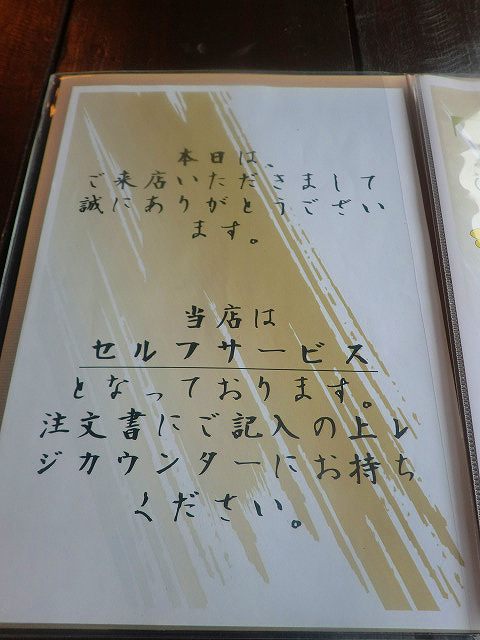 本日は、
ご来店いただきまして
誠にありがとうござい
ます。
当店は
セルフサービス
となっております。
注文書にご記入の上レ
ジカウンターにお持ち
ください。